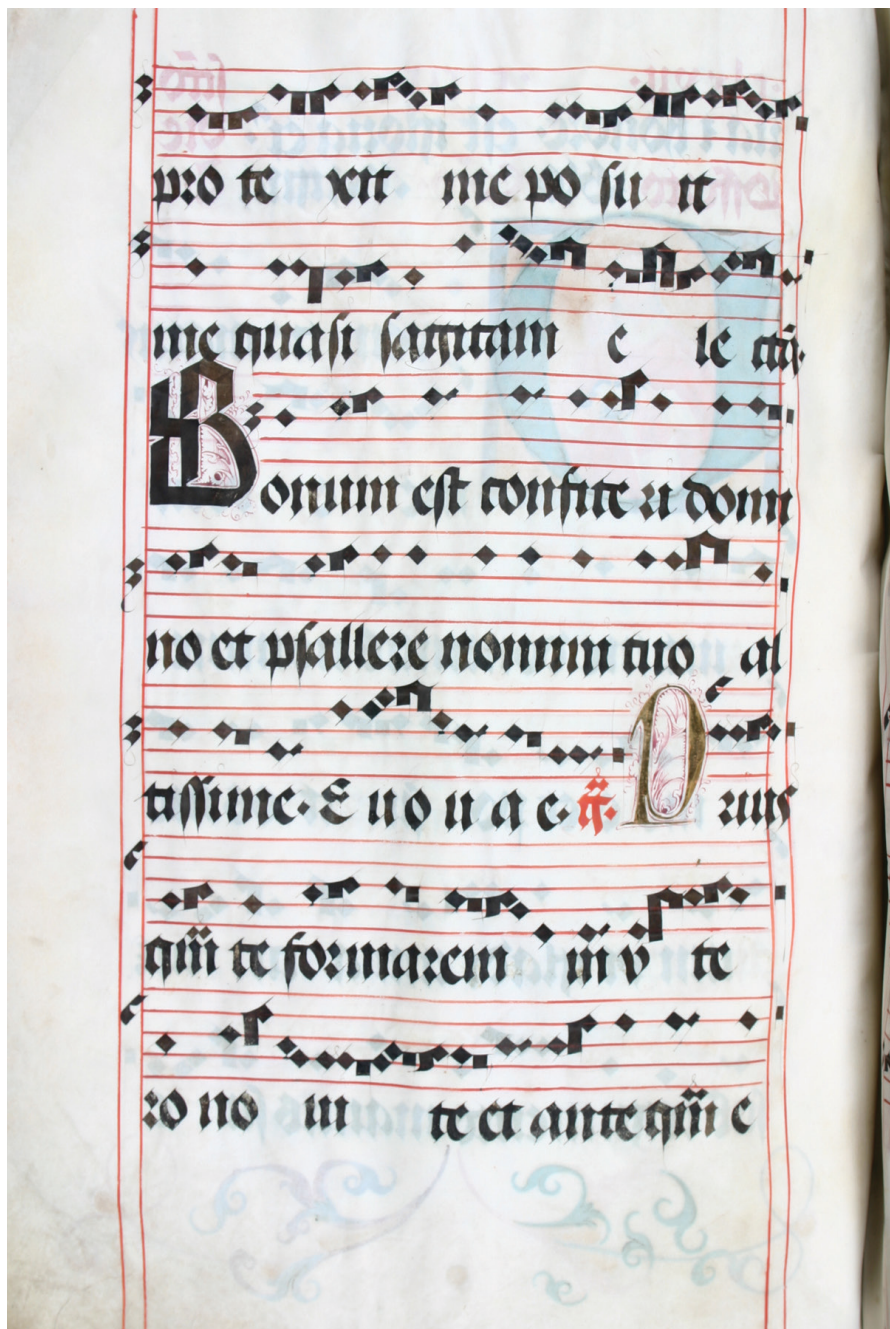 pro te xit me po su it
me quasi sagittam e le ctã.
Bonum est confite ri domi
no et psallere nomini tuo al
tissime. E u o u a e. Gr̃. Prius
q̃m te formarem in v̾ te
ro no ui te et ante q̃m e